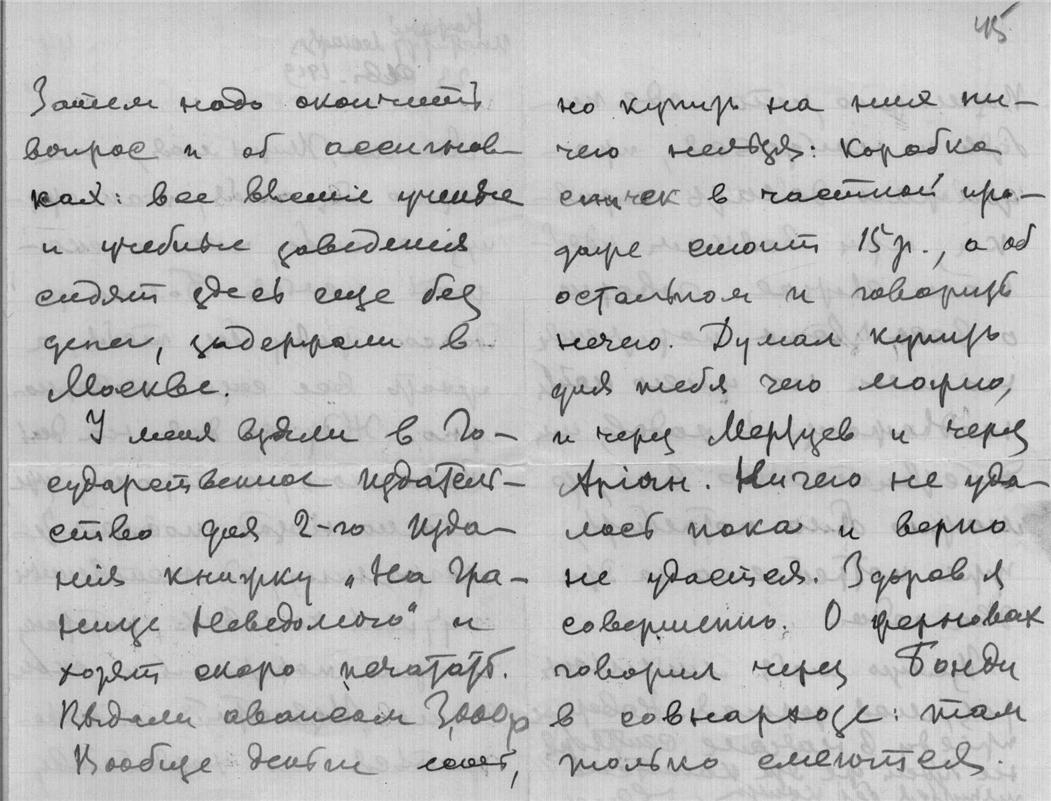 45
Затем надо окончить
вопрос и об ассигнов-
ках: все высшие ученые
и учебные заведения
сидят здесь еще без
денег, задержали в
Москве.
У меня взяли в Го-
сударственное издатель-
ство для 2-го изда-
ния книжку „На Гра-
нице Неведомого" и
хотят скоро печатать.
Выдали авансом 3000р
Вообще деньги есть,
но купить на них ни-
чего нельзя: коробка
спичек в частной про-
даже стоит 15 р., а об
остальном и говорить
нечего. Думал купить
для тебя чего можно,
и через Мерцев и через
Аріан. Ничего не уда-
лось пока и верно
не удастся. Здоров я
совершенно. О жерновах
говорил через Бонди
в совнархозе: там
только смеются.